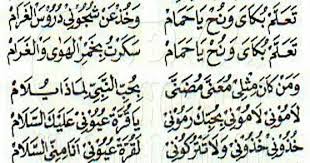 تَعَلَّمْ بُكَايَ وَنُحْ يَا حَمَامْ وَخُذْ عَنْ شُجُونِي دُرُوسَ الْغَرَامْ
تَعَلَّمْ بُكَايَ وَنُحْ يَا حَمَامْ سَكَرْتُ بِخَمْرِ الْهَوَى وَالْغَرَامْ
وَمَنْ كَانَ مِثْلِي مُعَنًّى مُضَنَّى بِحُبِّ النَّبِيِّ لِمَاذَا يُلَامْ
لَامُونِي لَامُونِي بِحُبِّكَ رَمُونِي يَا قُرَّةَ عُيُونِي عَلَيْكَ السَّلَامْ
خُذُونِي خُذُونِي وَلَا تَتْرُكُونِي لَقُرَّةُ عُيُونِي أَنَا مِنِّي السَّلَامْ